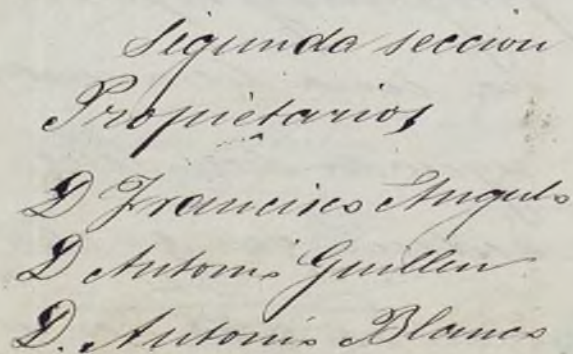 Segunda seccion
Propietarios
D Francisco Angulo
D Antonio Guillen
D. Antonio Blanco